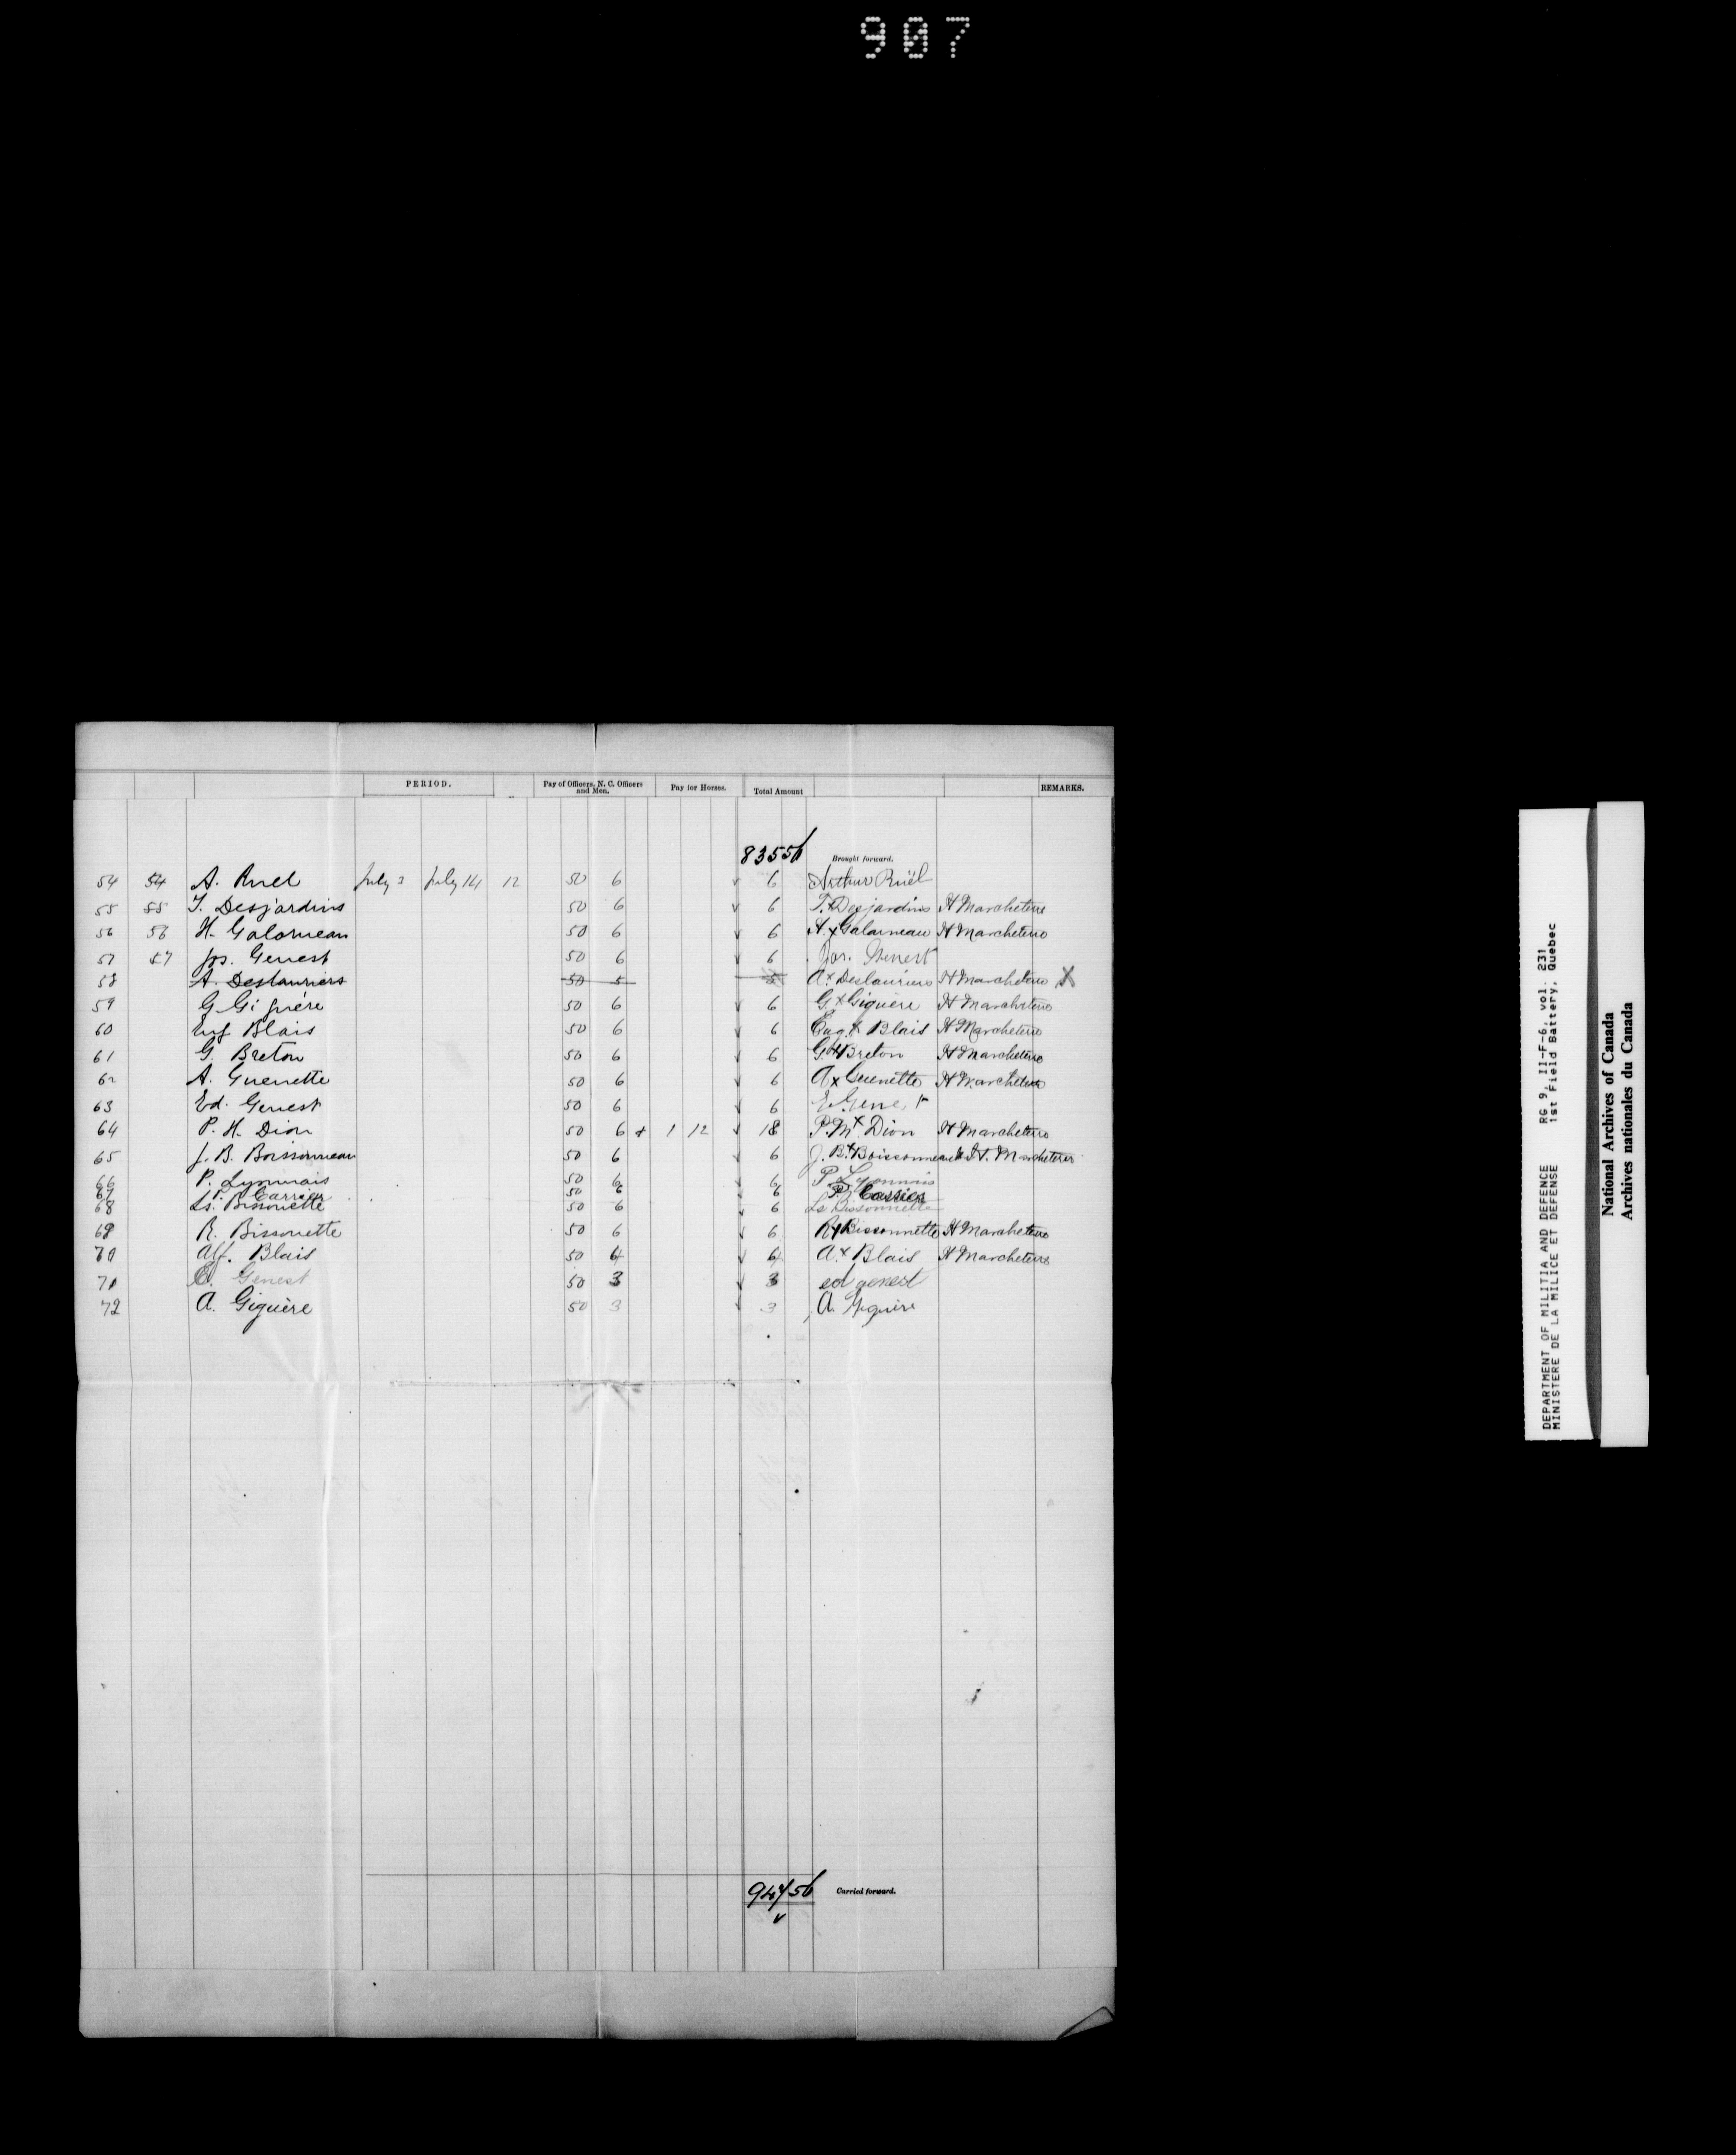 907
PERIOD. Pay of Officers, N. C. Officers and Men. Pay for Horses. Total Amount REMARKS.
83556 Brought forward.
54 54 A. Ruel July 3 July 14 12 50 6 ✓ 6 Arthur Ruël
55 55 T. Desjardins 50 6 ✓ 6 T. x Desjardins H Marcheterre
56 56 H. Galarneau 50 6 ✓ 6 H. x Galarneau H Marcheterre
57 57 Jos. Genest 50 6 ✓ 6 Jos. Genest
58 A. Deslauriers 50 5 5 A. x Deslauriers H Marcheterre X
59 G Giguère 50 6 ✓ 6 G x Giguère H Marcheterre
60 Eug Blais 50 6 ✓ 6 Eug x Blais H Marcheterre
61 G. Breton 50 6 ✓ 6 G. x Breton H Marcheterre
62 A. Guenette 50 6 ✓ 6 A x Guenette H Marcheterre
63 Ed. Genest 50 6 ✓ 6 E. Genest
64 P. H. Dion 50 6 + 1 12 ✓ 18 P. M. x Dion H Marcheterre
65 J. B. Boissonneau 50 6 ✓ 6 J. B. x Boissonneault H. Marcheterre
66 P. Lyonnais 50 6 ✓ 6 P. Lyonnais
67 P. Carrier 50 6 ✓ 6 P. Carrier
68 Ls. Bissonette 50 6 ✓ 6 Ls Bissonnette
69 R. Bissonette 50 6 ✓ 6 R x Bissonnette H Marcheterre
70 Alf. Blais 50 4 ✓ 4 A. x Blais H Marcheterre
71 E. Genest 50 3 ✓ 3 ed genest
72 A. Giguère 50 3 ✓ 3 A. Giguère
94756 Carried forward.
✓
DEPARTMENT OF MILITIA AND DEFENCE RG 9, II-F-6, vol. 231
MINISTERE DE LA MILICE ET DEFENSE 1st Field Battery, Quebec
National Archives of Canada
Archives nationales du Canada